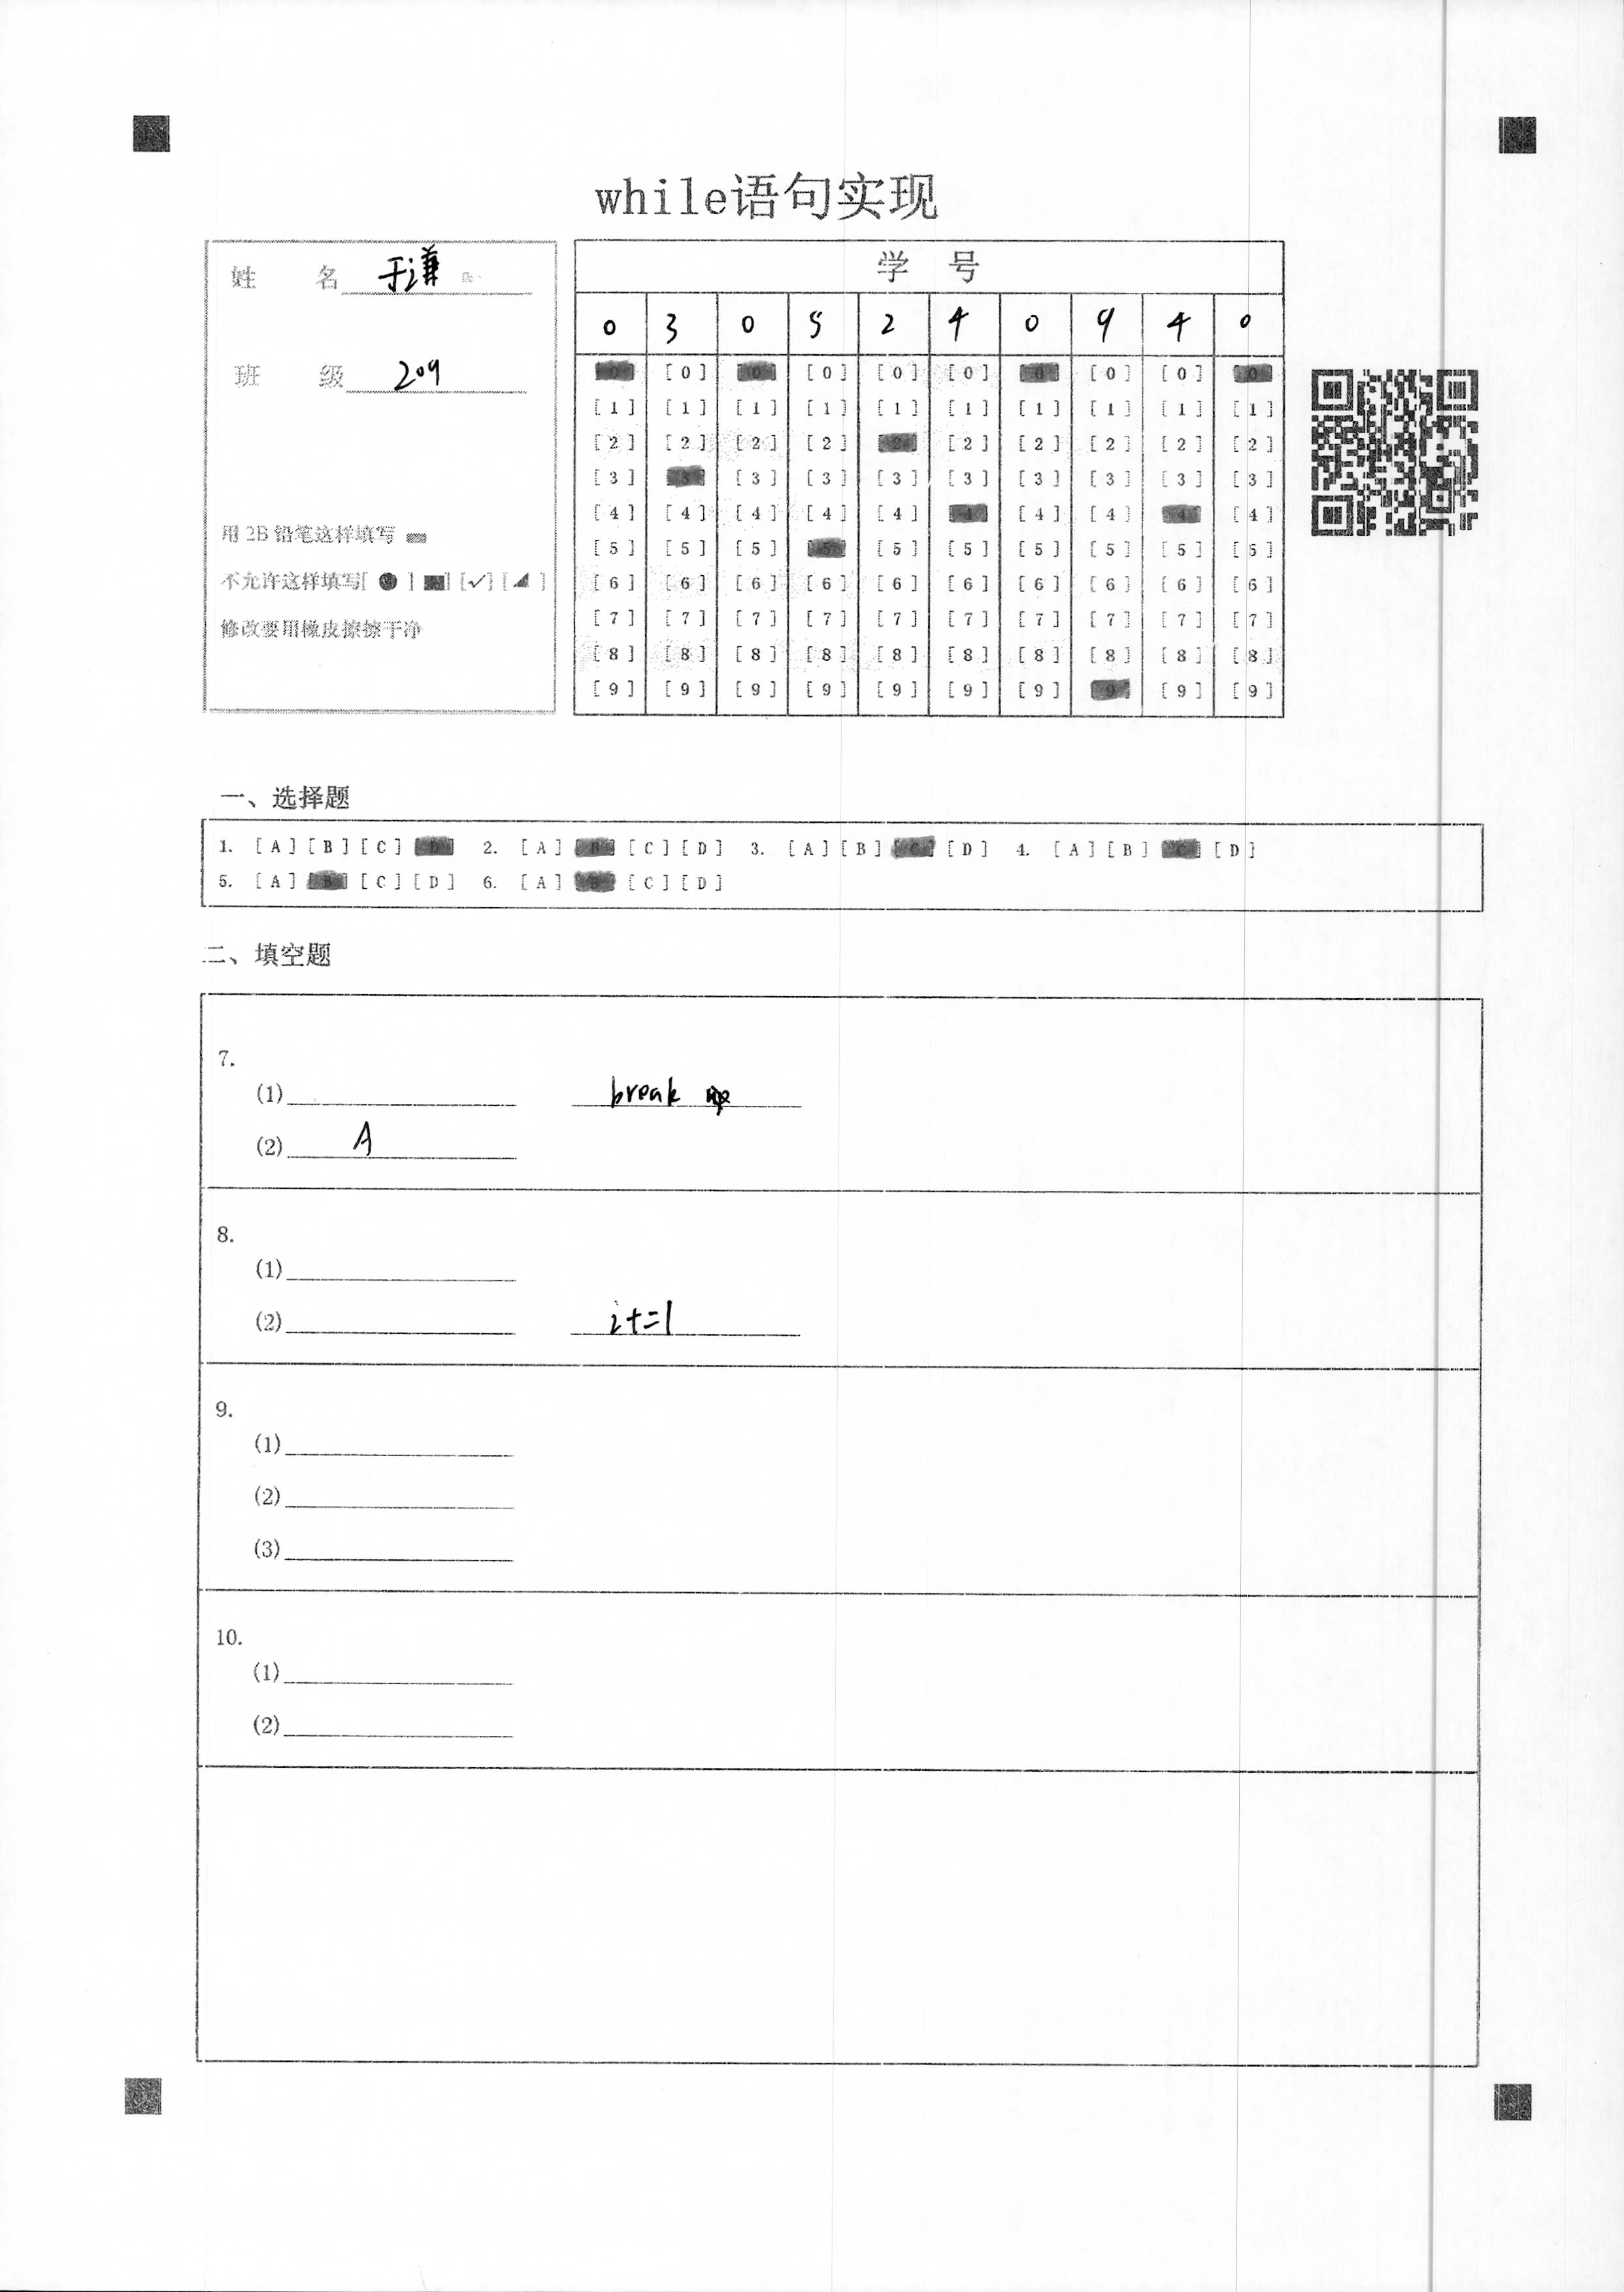 while语句实现
姓 名 于谦
班 级 209
用 2B 铅笔这样填写
不允许这样填写[ ● ] [■] [✓] [◢ ]
修改要用橡皮擦擦干净
学 号
0 3 0 5 2 4 0 9 4 0
[0] [0] [0] [0] [0] [0] [0] [0] [0] [0]
[1] [1] [1] [1] [1] [1] [1] [1] [1] [1]
[2] [2] [2] [2] [2] [2] [2] [2] [2] [2]
[3] [3] [3] [3] [3] [3] [3] [3] [3] [3]
[4] [4] [4] [4] [4] [4] [4] [4] [4] [4]
[5] [5] [5] [5] [5] [5] [5] [5] [5] [5]
[6] [6] [6] [6] [6] [6] [6] [6] [6] [6]
[7] [7] [7] [7] [7] [7] [7] [7] [7] [7]
[8] [8] [8] [8] [8] [8] [8] [8] [8] [8]
[9] [9] [9] [9] [9] [9] [9] [9] [9] [9]
一、选择题
1. [A] [B] [C] [D] 2. [A] [B] [C] [D] 3. [A] [B] [C] [D] 4. [A] [B] [C] [D]
5. [A] [B] [C] [D] 6. [A] [B] [C] [D]
二、填空题
7.
(1) break
(2) A
8.
(1)
(2) i+=1
9.
(1)
(2)
(3)
10.
(1)
(2)